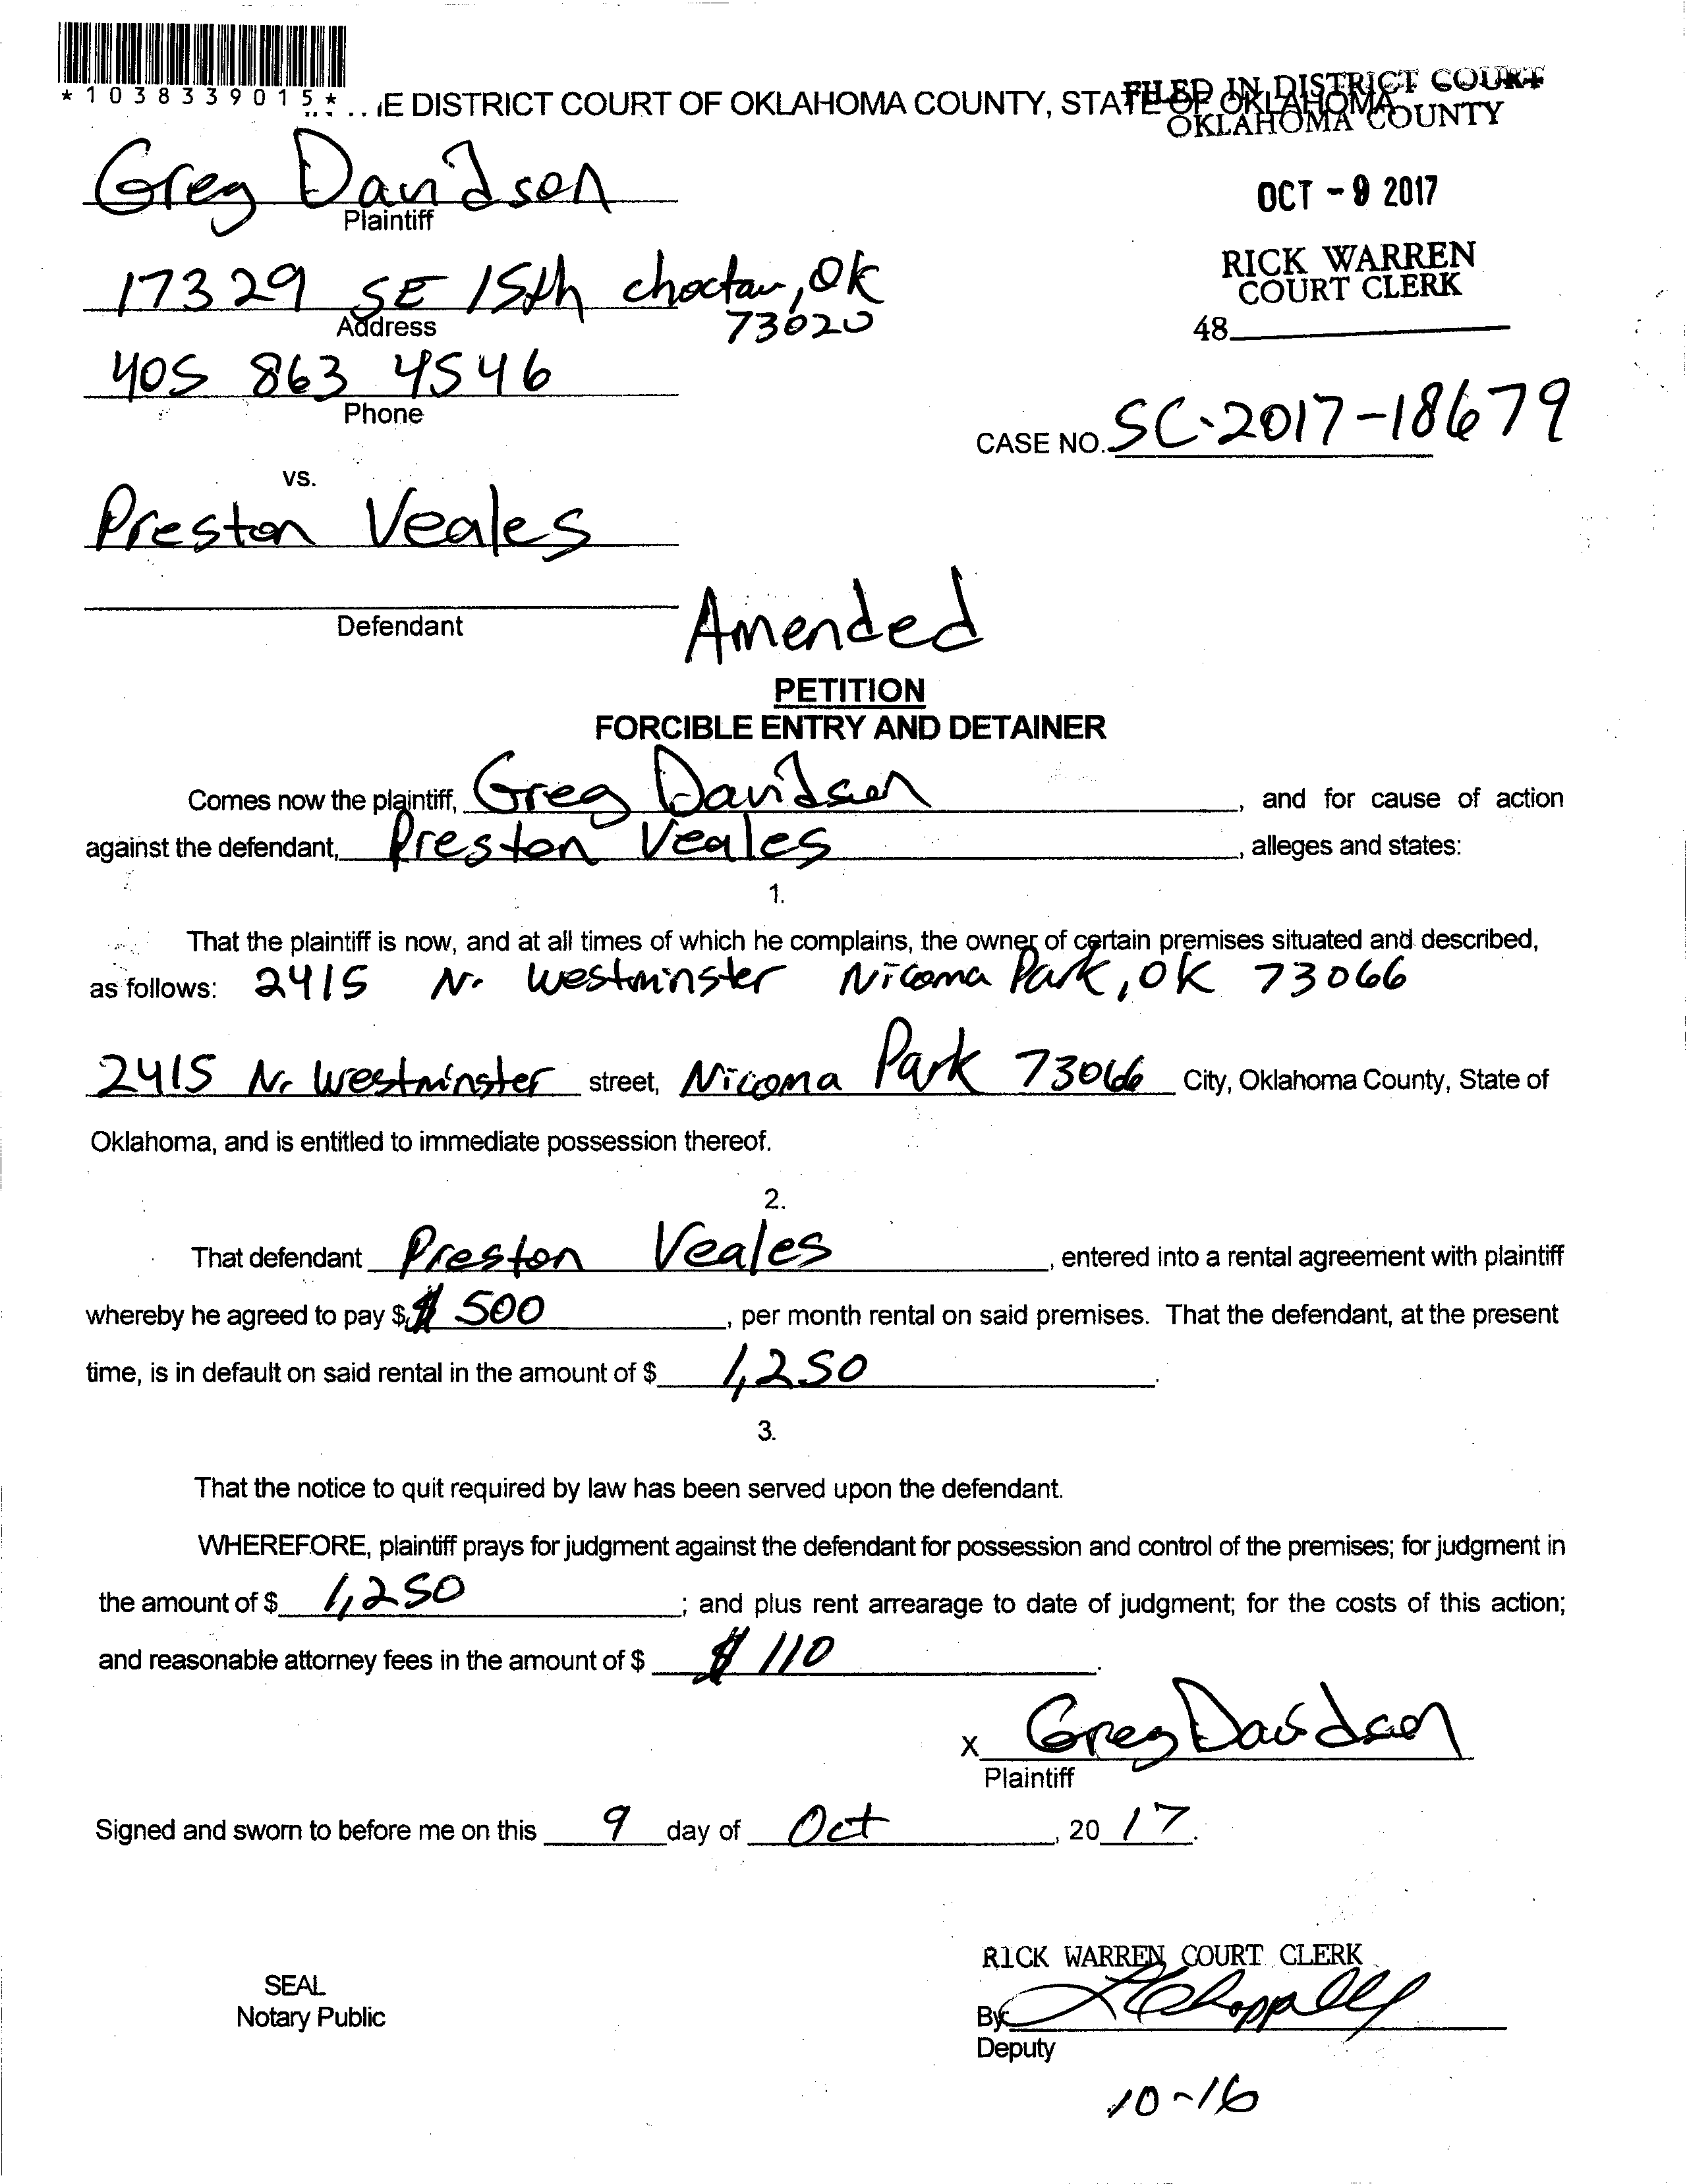 *1038339015*
E DISTRICT COURT OF OKLAHOMA COUNTY, STATE OF OKLAHOMA
FILED IN DISTRICT COURT
OKLAHOMA COUNTY
Greg Davidson
Plaintiff
OCT - 9 2017
17329 SE 15th choctaw, OK
73020
Address
RICK WARREN
COURT CLERK
48
405 863 4546
Phone
CASE NO. SC-2017-18679
vs.
Preston Veales
Defendant
Amended
PETITION
FORCIBLE ENTRY AND DETAINER
Comes now the plaintiff, Greg Davidson, and for cause of action
against the defendant, Preston Veales, alleges and states:
1.
That the plaintiff is now, and at all times of which he complains, the owner of certain premises situated and described,
as follows: 2415 N. Westminster Nicoma Park, OK 73066
2415 N. Westminster street, Nicoma Park 73066 City, Oklahoma County, State of
Oklahoma, and is entitled to immediate possession thereof.
2.
That defendant Preston Veales, entered into a rental agreement with plaintiff
whereby he agreed to pay $ $ 500, per month rental on said premises. That the defendant, at the present
time, is in default on said rental in the amount of $ 1,250.
3.
That the notice to quit required by law has been served upon the defendant.
WHEREFORE, plaintiff prays for judgment against the defendant for possession and control of the premises; for judgment in
the amount of $ 1,250; and plus rent arrearage to date of judgment; for the costs of this action;
and reasonable attorney fees in the amount of $ $ 110.
X Greg Davidson
Plaintiff
Signed and sworn to before me on this 9 day of Oct, 20 17.
RICK WARREN COURT CLERK
SEAL
Notary Public
By
Deputy
10-16